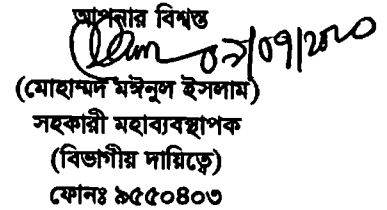 আপনার বিশ্বস্ত
০৯/০৭/২০২০
(মোহাম্মদ মঈনুল ইসলাম)
সহকারী মহাব্যবস্থাপক
(বিভাগীয় দায়িত্বে)
ফোনঃ ৯৫৫০৪০৩